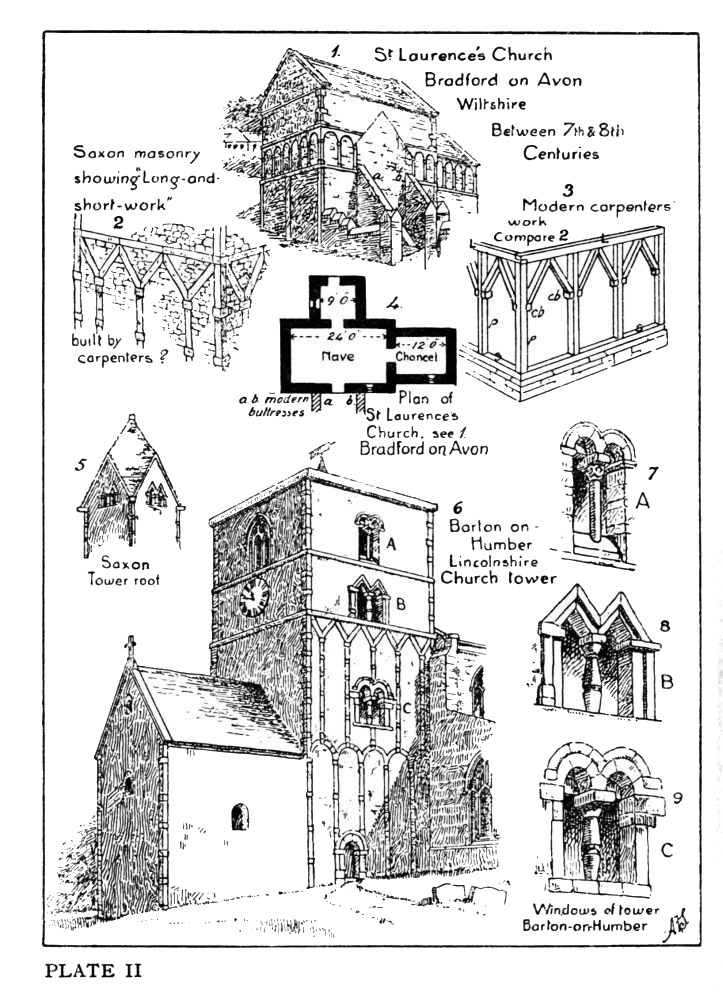 1. St Laurence's Church
Bradford on Avon
Wiltshire
Between 7th & 8th
Centuries
a. b.
Saxon masonry
showing "Long-and-
short-work"
2
built by
carpenters?
3
Modern carpenters'
work
Compare 2
cb
cb
4.
9' 0"
24' 0"
Nave
12' 0"
Chancel
a. b. modern
buttresses
a b
Plan of
St Laurence's
Church, see 1.
Bradford on Avon
5
Saxon
Tower roof
6
Barton on-
Humber
Lincolnshire
Church tower
A
B
C
7
A
8
B
9
C
Windows of tower
Barton-on-Humber
PLATE II